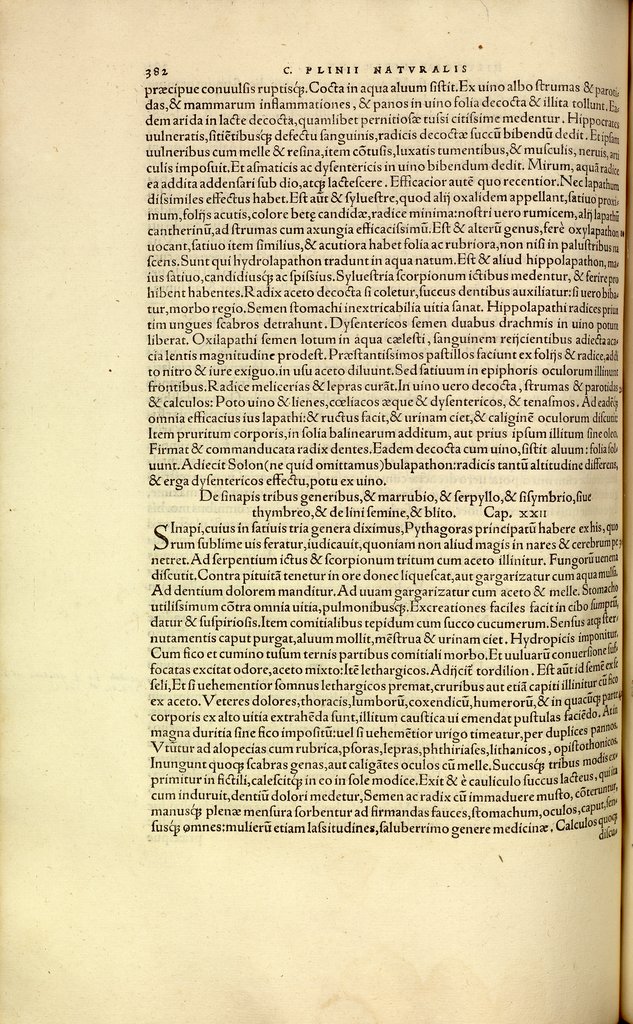 382 C. PLINII NATVRALIS
præcipue conuulsis ruptisq̃. Cocta in aqua aluum sistit. Ex uino albo strumas & paroti
das, & mammarum inflammationes, & panos in uino folia decocta & illita tollunt. Ea
dem arida in lacte decocta, quamlibet perniciosæ tussi citissime medentur. Hippocrates
uulneratis, sitiētibusq̃ defectu sanguinis, radicis decoctæ succū bibendū dedit. Et ipsam
uulneribus cum melle & resina, item cōtusis, luxatis tumentibus, & musculis, neruis, arti
culis imposuit. Et asmaticis ac dysentericis in uino bibendum dedit. Mirum, aquā radice
ea addita addensari sub dio, atq̃ lactescere. Efficacior autē quo recentior. Nec lapathum
dissimiles effectus habet. Est aūt & syluestre, quod alij oxalidem appellant, satiuo proxi
mum, folijs acutis, colore betę candidæ, radice minima: nostri uero rumicem, alij lapathū
cantherinū, ad strumas cum axungia efficacissimū. Est & alterū genus, ferè oxylapathon
uocant, satiuo item similius, & acutiora habet folia ac rubriora, non nisi in palustribus na
scens. Sunt qui hydrolapathon tradunt in aqua natum. Est & aliud hippolapathon, ma
ius satiuo, candidiusq̃ ac spissius. Syluestria scorpionum ictibus medentur, & ferire pro
hibent habentes. Radix aceto decocta si coletur, succus dentibus auxiliatur: si uero biba
tur, morbo regio. Semen stomachi inextricabilia uitia sanat. Hippolapathi radices priua
tim ungues scabros detrahunt. Dysentericos semen duabus drachmis in uino potum
liberat. Oxilapathi semen lotum in aqua cælesti, sanguinem reijcientibus adiecta aca
cia lentis magnitudine prodest. Præstantissimos pastillos faciunt ex folijs & radice, addi
to nitro & iure exiguo. in usu aceto diluunt. Sed satiuum in epiphoris oculorum illinunt
frontibus. Radice melicerias & lepras curāt. In uino uero decocta, strumas & parotidas
& calculos: Poto uino & lienes, cœliacos æque & dysentericos, & tenasmos. Ad eadēq̃
omnia efficacius ius lapathi: & ructus facit, & urinam ciet, & caliginē oculorum discutit
Item pruritum corporis, in solia balinearum additum, aut prius ipsum illitum sine oleo.
Firmat & commanducata radix dentes. Eadem decocta cum uino, sistit aluum: folia sol
uunt. Adiecit Solon (ne quid omittamus) bulapathon: radicis tantū altitudine differens,
& erga dysentericos effectu, potu ex uino.
De sinapis tribus generibus, & marrubio, & serpyllo, & sisymbrio, siue
thymbreo, & de lini semine, & blito. Cap. XXII
SInapi, cuius in satiuis tria genera diximus, Pythagoras principatū habere ex his, quo
rum sublime uis feratur, iudicauit, quoniam non aliud magis in nares & cerebrum pe
netret. Ad serpentium ictus & scorpionum tritum cum aceto illinitur. Fungorū uenena
discutit. Contra pituitā tenetur in ore donec liquescat, aut gargarizatur cum aqua mulsa.
Ad dentium dolorem manditur. Ad uuam gargarizatur cum aceto & melle. Stomacho
utilissimum cōtra omnia uitia, pulmonibusq̃. Excreationes faciles facit in cibo sumptū,
datur & suspiriosis. Item comitialibus tepidum cum succo cucumerum. Sensus atq̃ ster
nutamentis caput purgat, aluum mollit, mēstrua & urinam ciet. Hydropicis imponitur.
Cum fico et cumino tusum ternis partibus comitiali morbo. Et uuluarū conuersione suf
focatas excitat odore, aceto mixto: Itē lethargicos. Adijcit̄ tordilion. Est aūt id semē ex se
seli, Et si uehementior somnus lethargicos premat, cruribus aut etiā capiti illinitur cū fico
ex aceto. Veteres dolores, thoracis, lumborū, coxendicū, humerorū, & in quacūq̃ parte
corporis ex alto uitia extrahēda sunt, illitum caustica ui emendat pustulas faciēdo. At in
magna duritia sine fico impositū: uel si uehemētior urigo timeatur, per duplices pannos.
Vtūtur ad alopecias cum rubrica, psoras, lepras, phthiriases, lithanicos, opistothonicos.
Inungunt quoq̃ scabras genas, aut caligātes oculos cū melle. Succusq̃ tribus modis ex
primitur in fictili, calescitq̃ in eo in sole modice. Exit & è cauliculo succus lacteus, qui ita
cum induruit, dentiū dolori medetur, Semen ac radix cū immaduere musto, cōteruntur,
manusq̃ plenæ mensura sorbentur ad firmandas fauces, stomachum, oculos, caput, sen
susq̃ omnes: mulierū etiam lassitudines, saluberrimo genere medicinæ. Calculos quoq̃
discu